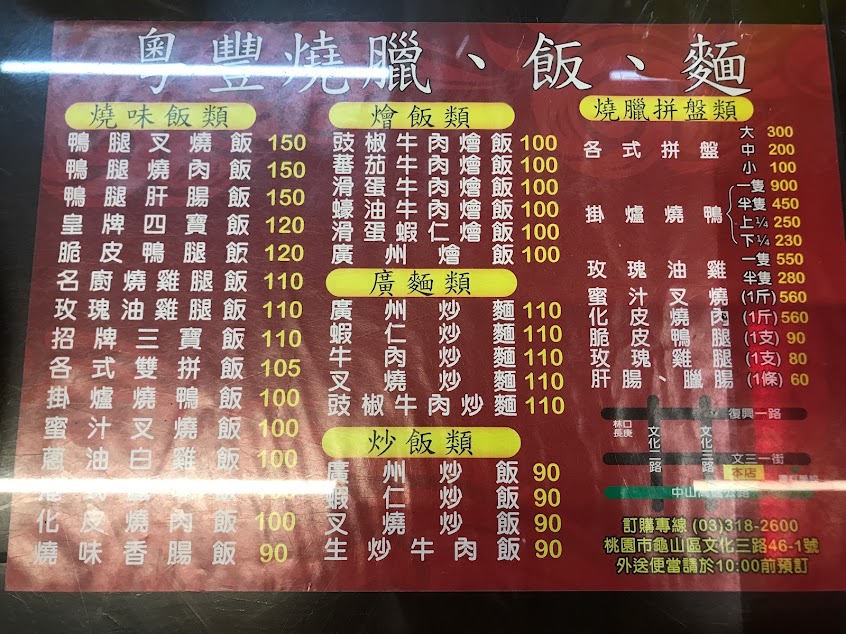 粵豐燒臘、飯、麵
燒味飯類
鴨腿叉燒飯 150
鴨腿燒肉飯 150
鴨腿肝腸飯 150
皇牌四寶飯 120
脆皮鴨腿飯 120
名廚燒雞腿飯 110
玫瑰油雞腿飯 110
招牌三寶飯 110
各式雙拼飯 105
掛爐燒鴨飯 100
蜜汁叉燒飯 100
蔥油白雞飯 100
飯 100
化皮燒肉飯 100
燒味香腸飯 90
燴飯類
豉椒牛肉燴飯 100
蕃茄牛肉燴飯 100
滑蛋牛肉燴飯 100
蠔油牛肉燴飯 100
滑蛋蝦仁燴飯 100
廣州燴飯 100
廣麵類
廣州炒麵 110
蝦仁炒麵 110
牛肉炒麵 110
叉燒炒麵 110
豉椒牛肉炒麵 110
炒飯類
廣州炒飯 90
蝦仁炒飯 90
叉燒炒飯 90
生炒牛肉飯 90
燒臘拼盤類
各式拼盤 大 300
中 200
小 100
掛爐燒鴨 一隻 900
半隻 450
上¼ 250
下¼ 230
玫瑰油雞 一隻 550
半隻 280
蜜汁叉燒 (1斤) 560
化皮燒肉 (1斤) 560
脆皮鴨腿 (1支) 90
玫瑰雞腿 (1支) 80
肝腸、臘腸 (1條) 60
復興一路
林口
長庚
文化二路
文化三路
文三一街
本店
中山高速公路
訂購專線 (03)318-2600
桃園市龜山區文化三路46-1號
外送便當請於10:00前預訂